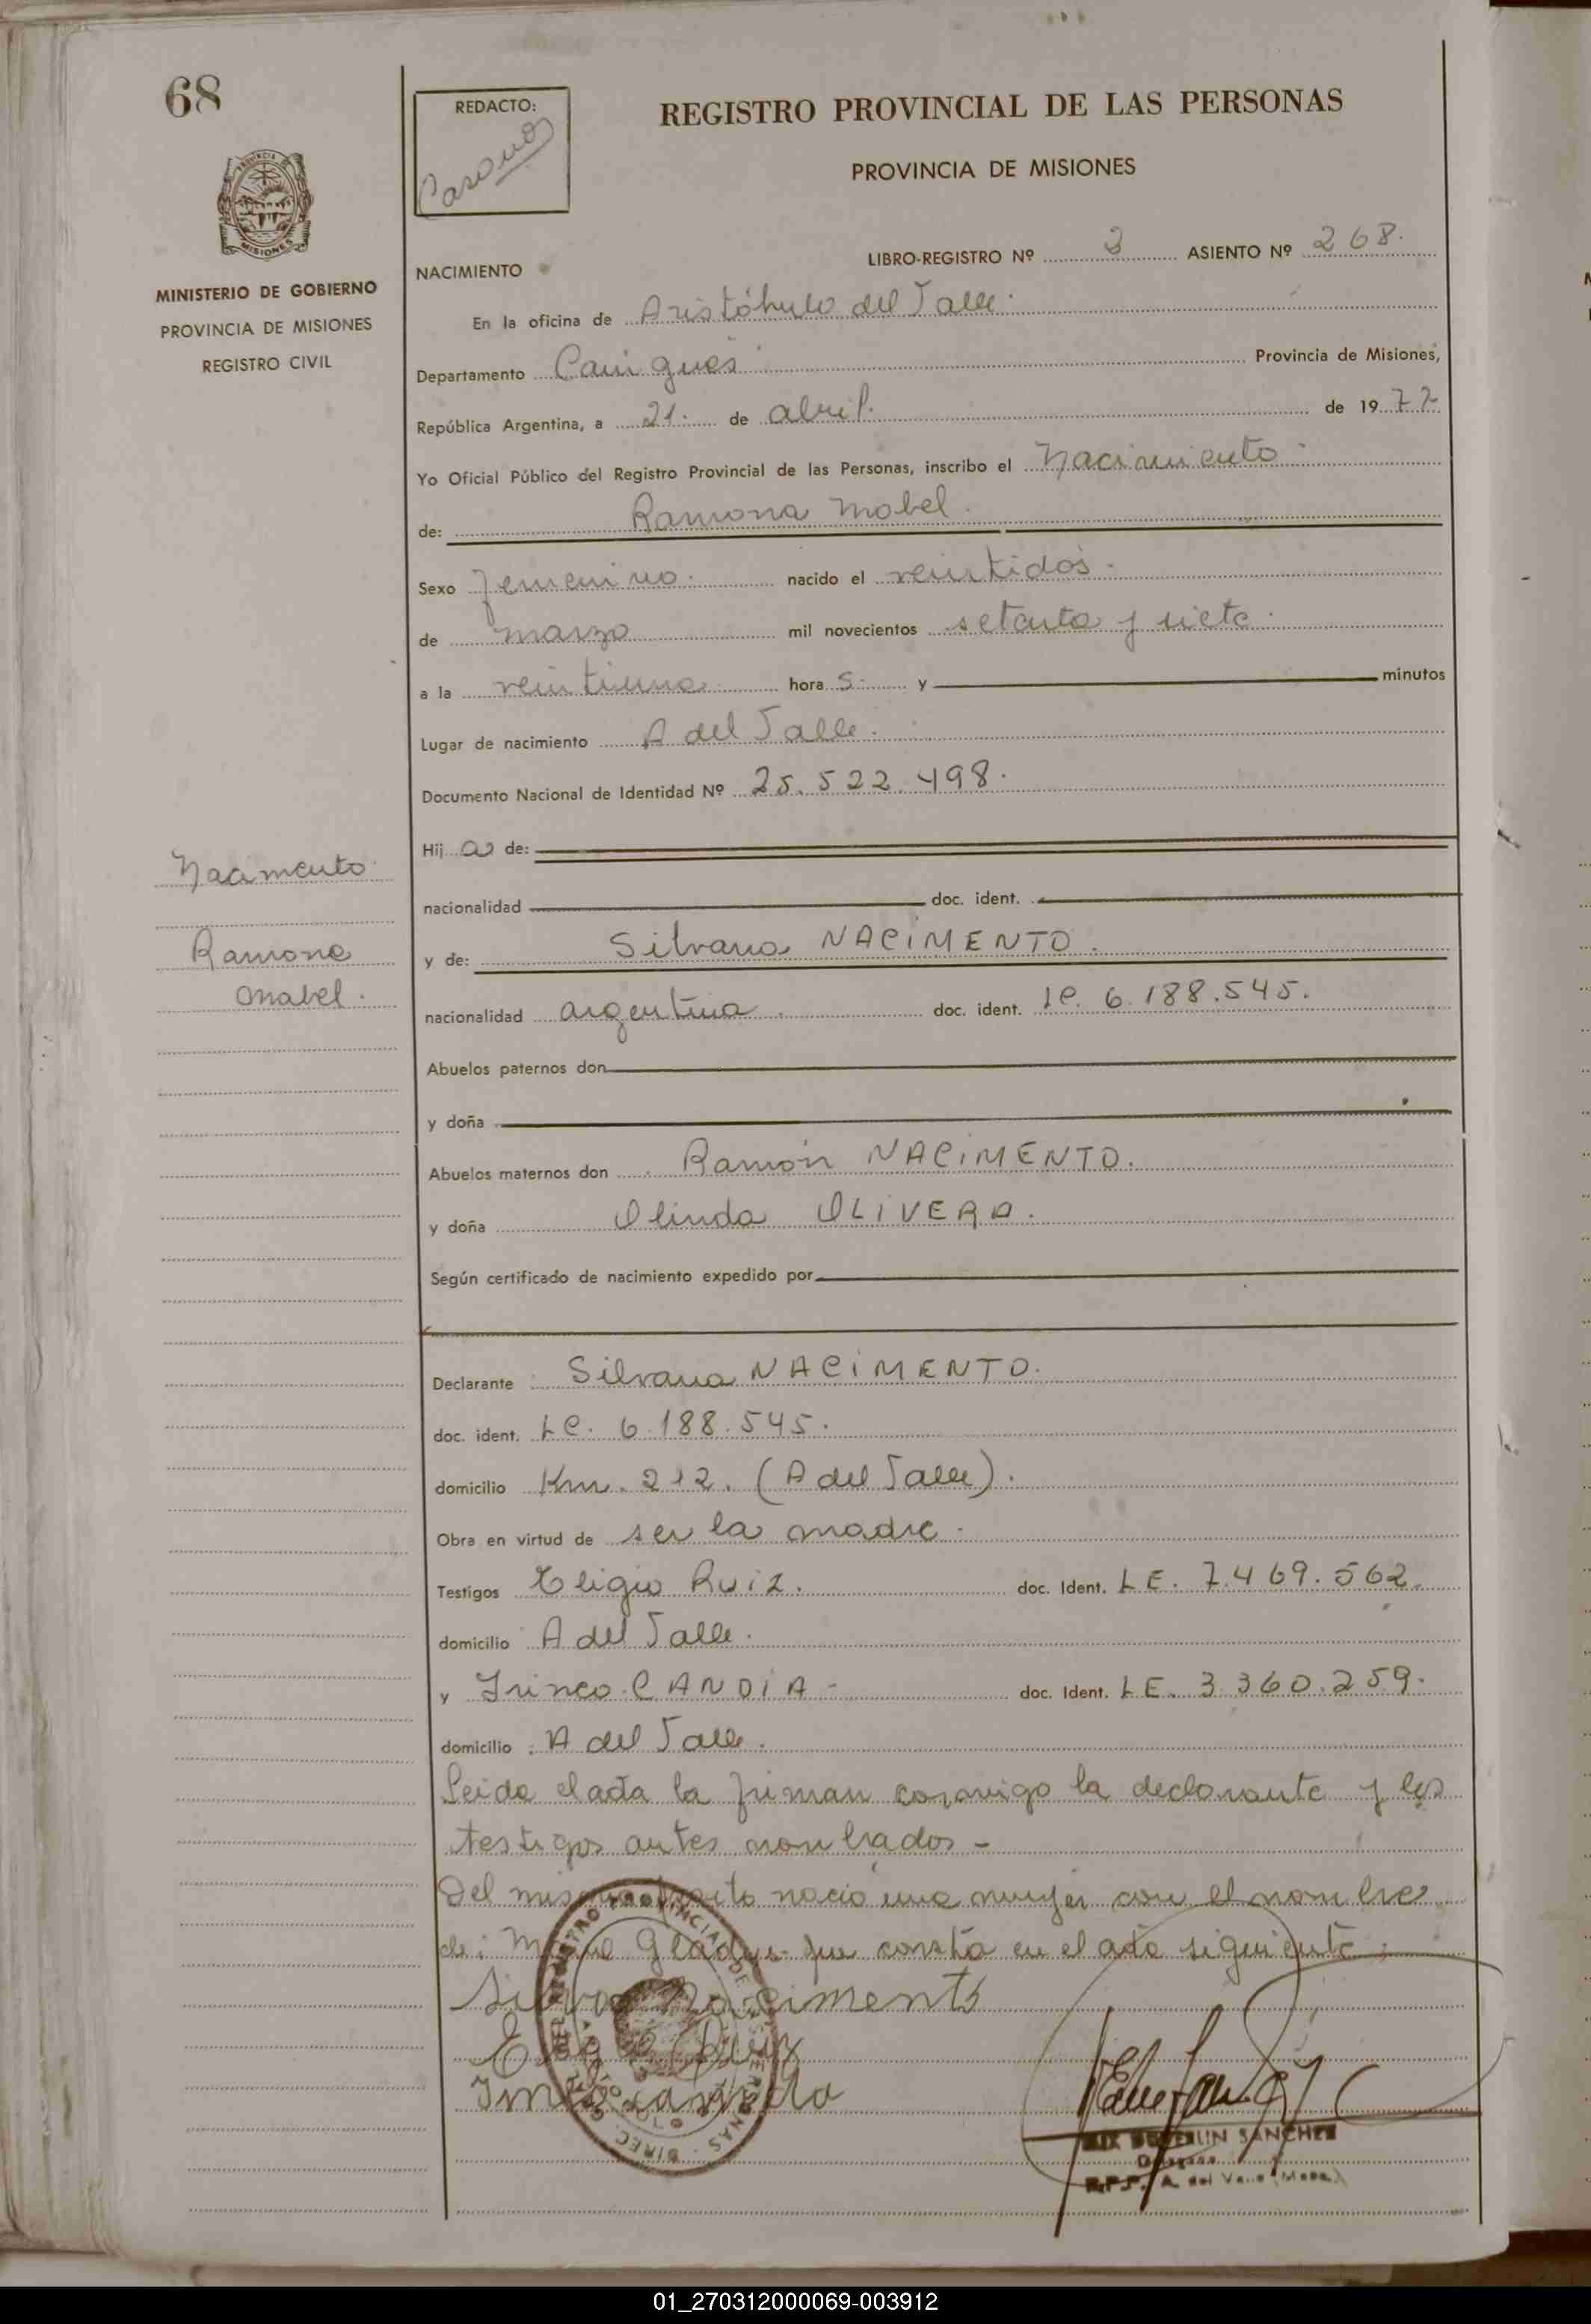 68
REDACTO:
REGISTRO PROVINCIAL DE LAS PERSONAS
PROVINCIA DE MISIONES
PROVINCIA DE
MISIONES
MINISTERIO DE GOBIERNO
PROVINCIA DE MISIONES
REGISTRO CIVIL
NACIMIENTO
LIBRO-REGISTRO Nº 3 ASIENTO Nº 268.
En la oficina de Aristóbulo del Valle.
Departamento Cainguás Provincia de Misiones,
República Argentina, a 21. de abril. de 19 77
Yo Oficial Público del Registro Provincial de las Personas, inscribo el Nacimiento
de: Ramona Mabel.
Sexo femenino. nacido el veintidós.
de marzo mil novecientos setenta y siete.
a la veintiuna hora s y minutos
Lugar de nacimiento A del Valle.
Documento Nacional de Identidad Nº 25.522.498.
Hij a de:
nacionalidad doc. ident.
Nacimento
Ramona
Mabel.
y de: Silvana NACIMENTO.
nacionalidad argentina. doc. ident. LC. 6.188.545.
Abuelos paternos don
y doña
Abuelos maternos don Ramón NACIMENTO.
y doña Olinda OLIVERA.
Según certificado de nacimiento expedido por
Declarante Silvana NACIMENTO.
doc. ident. LC. 6.188.545.
domicilio Km. 212. (A del Valle).
Obra en virtud de ser la madre.
Testigos Eligio Ruiz. doc. Ident. LE. 7.469.562.
domicilio A del Valle.
y Irineo CANDIA - doc. Ident. LE. 3.360.259.
domicilio A del Valle.
Leida el acta la firman conmigo la declarante y los
testigos antes nombrados -
Del mismo parto nació una mujer con el nombre
de: Gladys que consta en el acta siguiente.
Silvana Nacimento
SANCHEZ
R.P.P. A. del Valle (Mnes.)
01_270312000069-003912